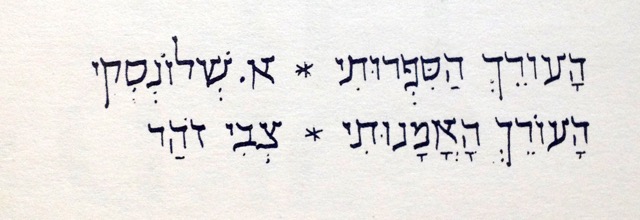 הָעוֹרֵךְ הַסִּפְרוּתִי * א. שְׁלוֹנְסְקִי
הָעוֹרֵךְ הָאֳמָנוּתִי * צְבִי זֹהַר